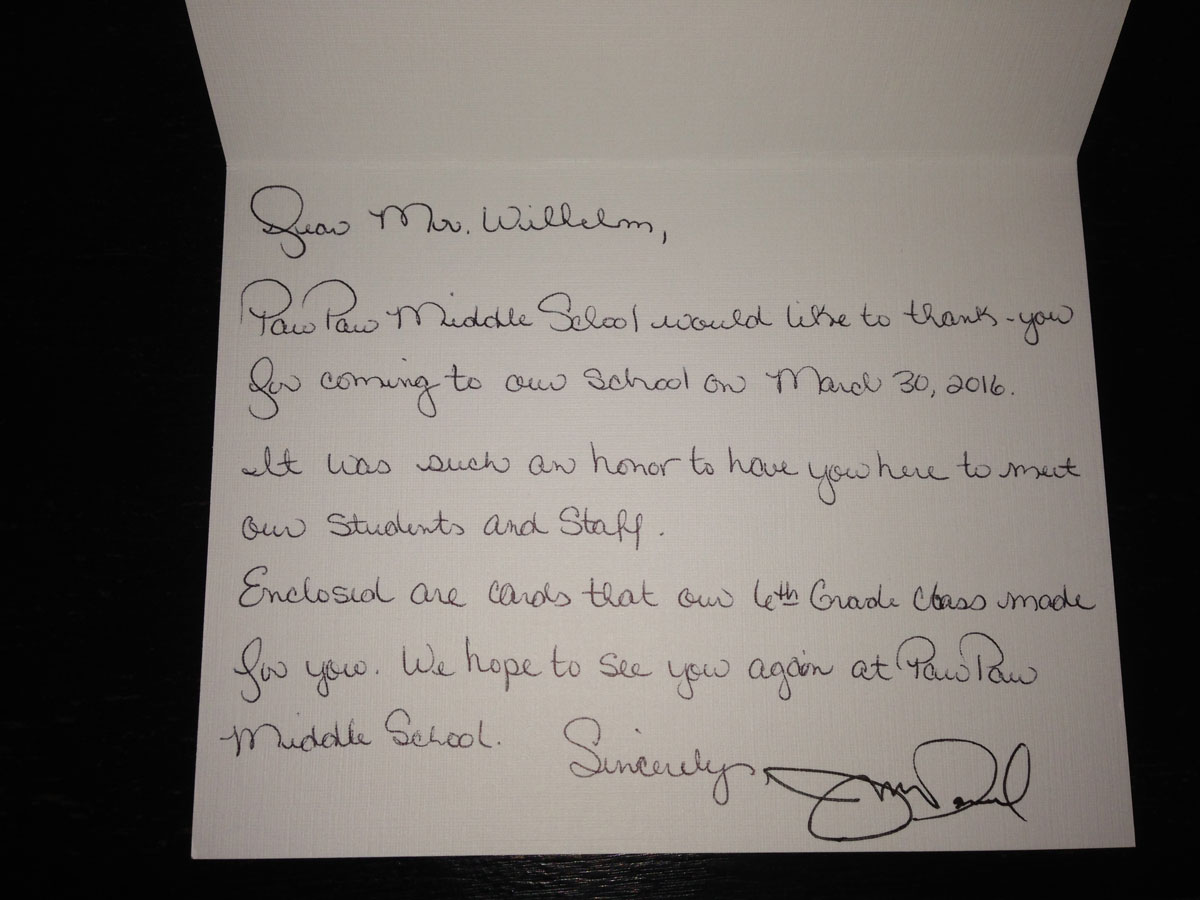 Dear Mr. Wilhelm,
Paw Paw Middle School would like to thank-you
for coming to our school on March 30, 2016.
It was such an honor to have you here to meet
our Students and Staff.
Enclosed are cards that our 6th Grade Class made
for you. We hope to see you again at Paw Paw
Middle School. Sincerely,